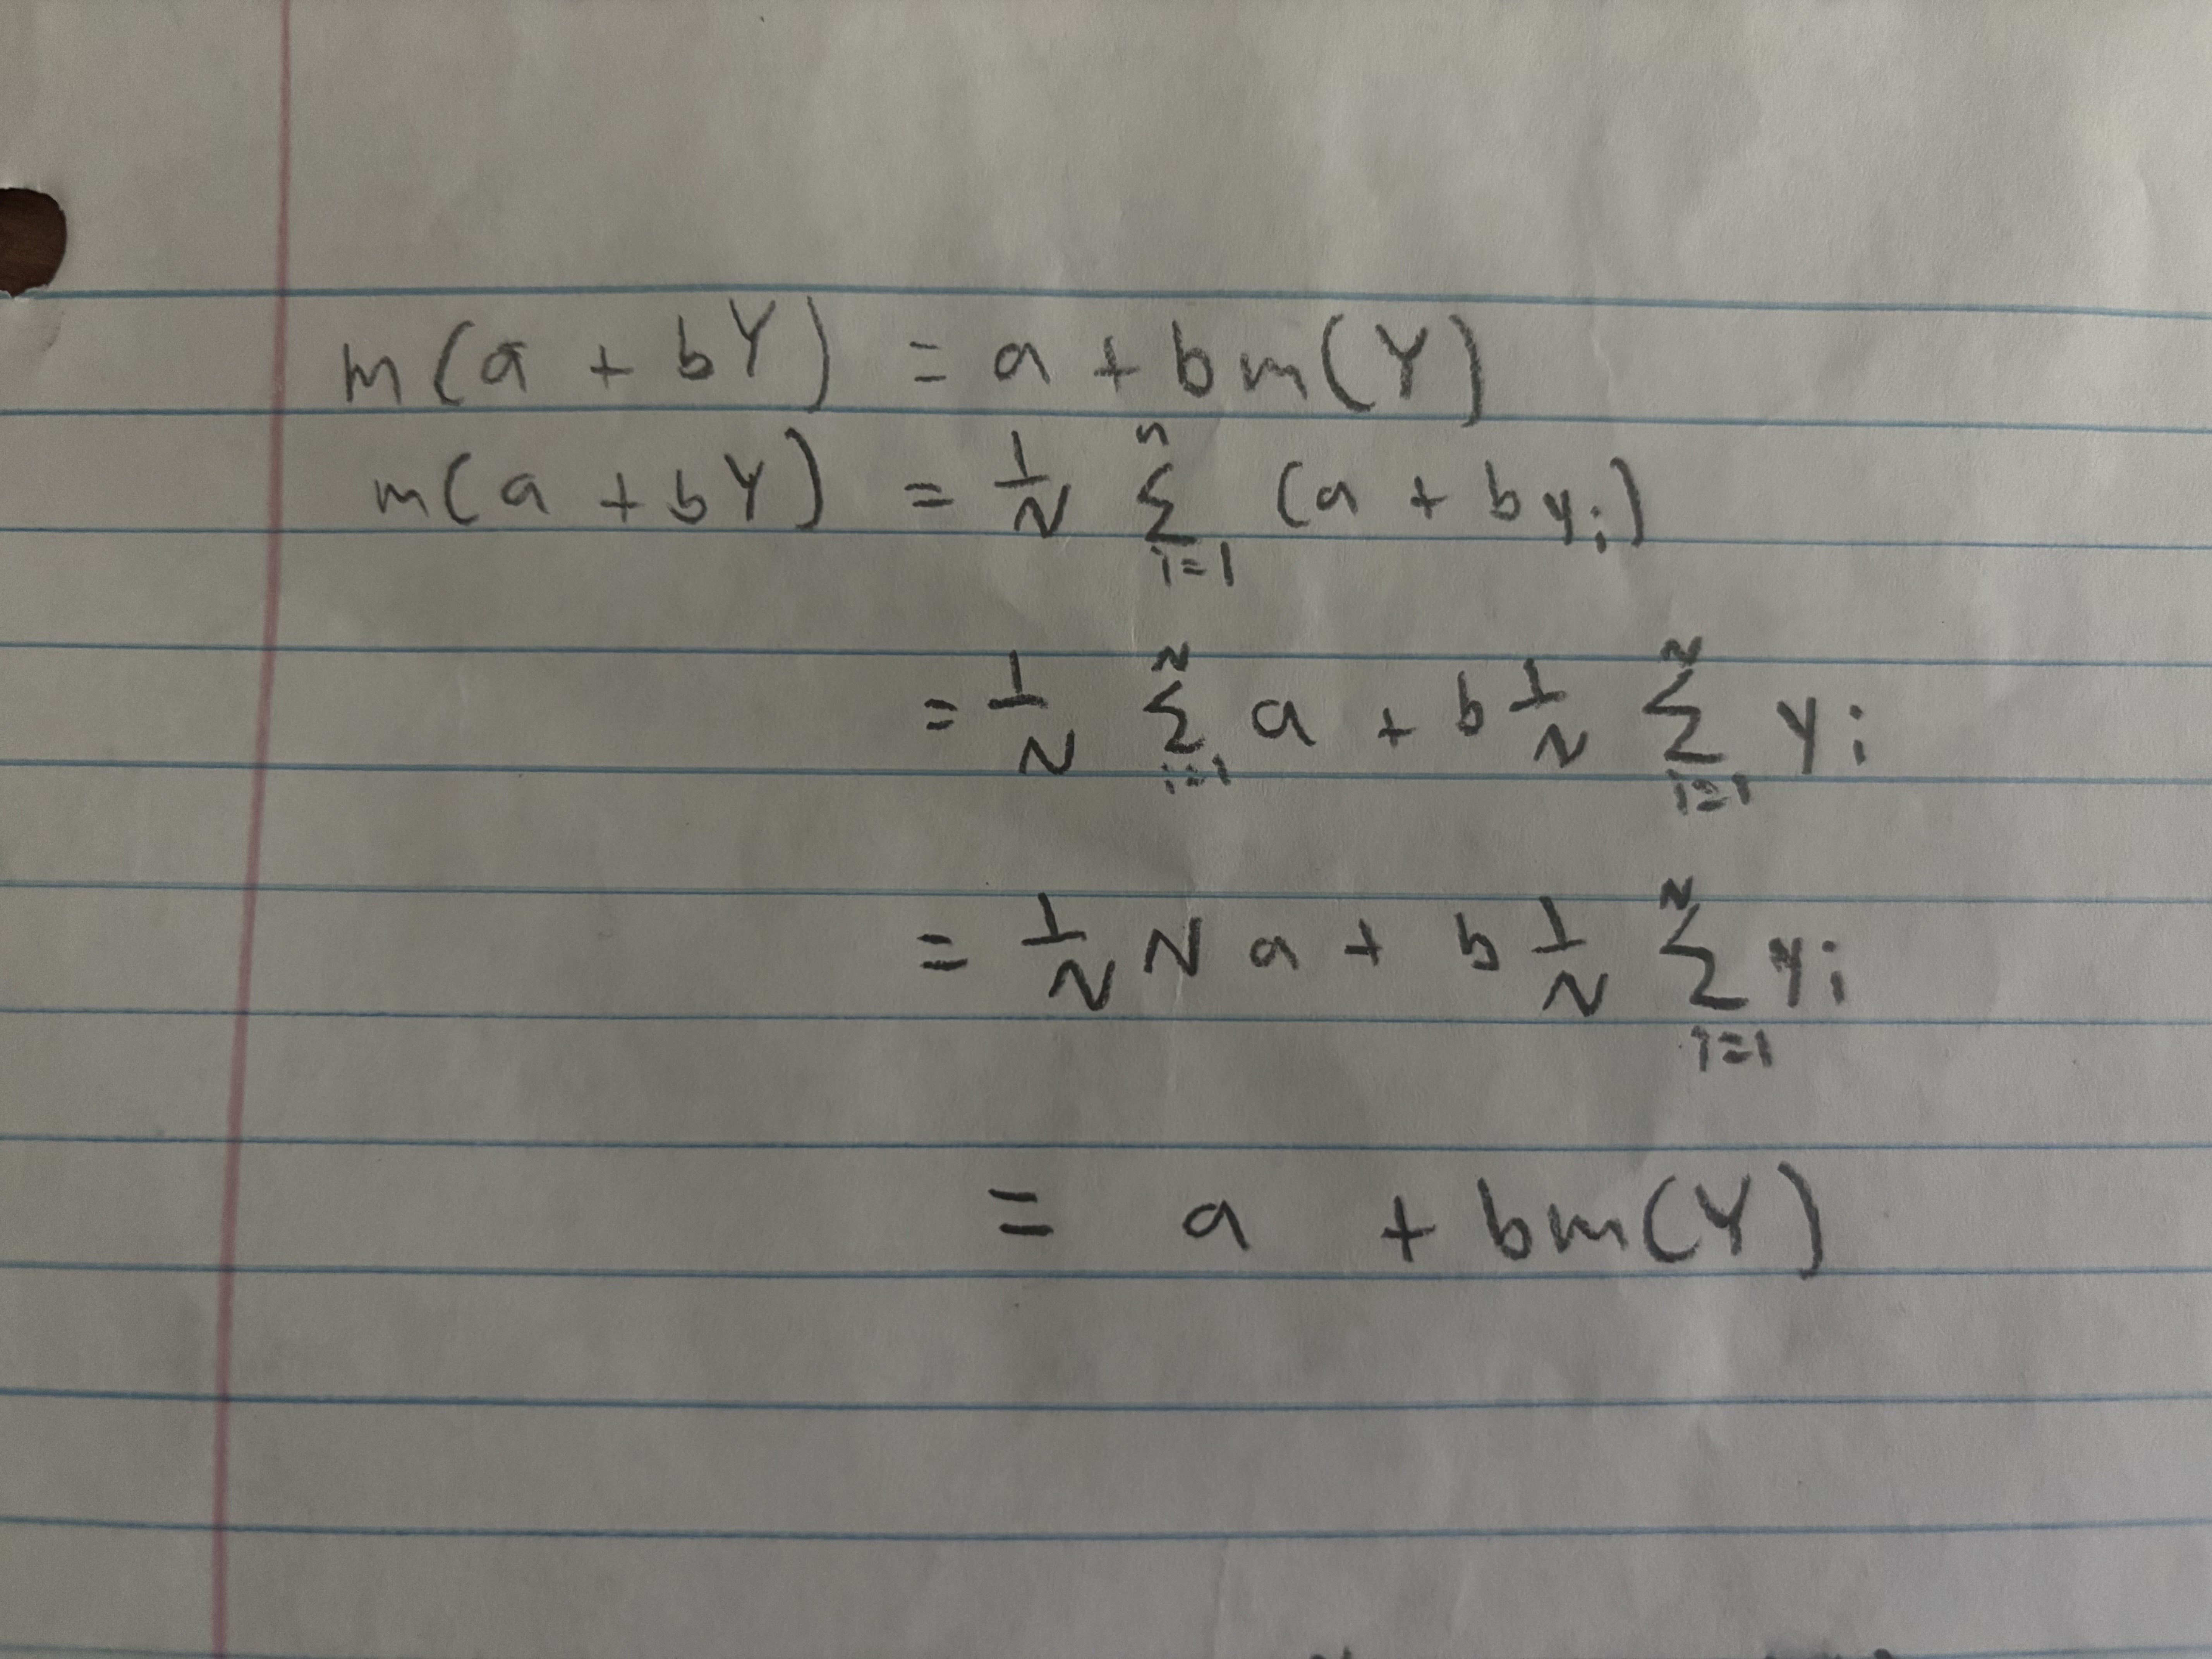 m(a + bY) = a + bm(Y)
m(a + bY) = 1/N n∑i=1 (a + byi)
= 1/N N∑i=1 a + b 1/N N∑i=1 yi
= 1/N N a + b 1/N N∑i=1 yi
= a + bm(Y)